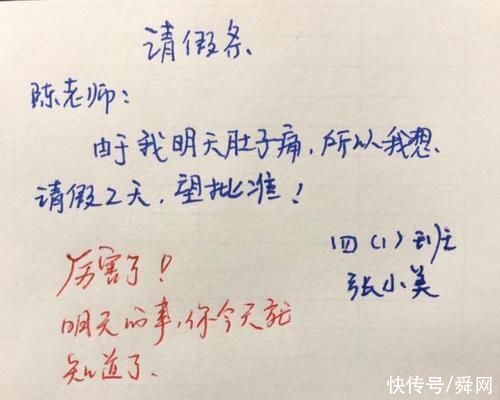 请假条
陈老师：
由于我明天肚子痛，所以我想
请假2天，望批准！
四（1）班
张小美
厉害了！
明天的事，你今天就
知道了。
快传号/舜网